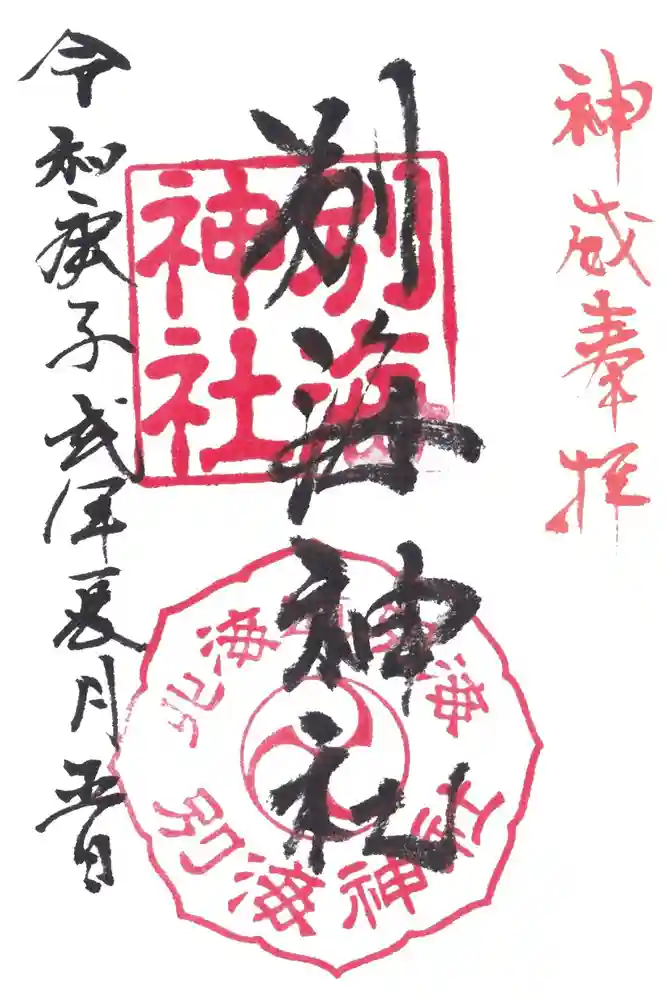 神威奉拝
別海神社
別海
神社
北海道別海
別海神社
令和庚子弐年夏月五日